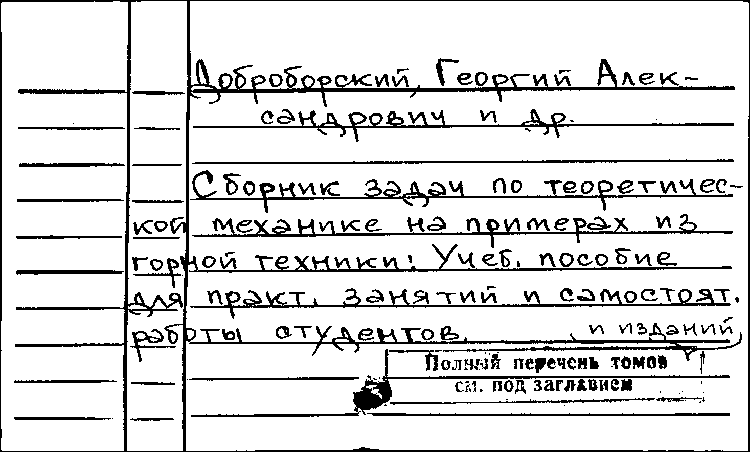 Доброборский, Георгий Алек-
сандрович и др.
Сборник задач по теоретичес-
кой механике на примерах из
горной техники: Учеб. пособие
для практ. занятий и самостоят.
работы студентов.
и изданий
Полный перечень томов
см. под заглавием